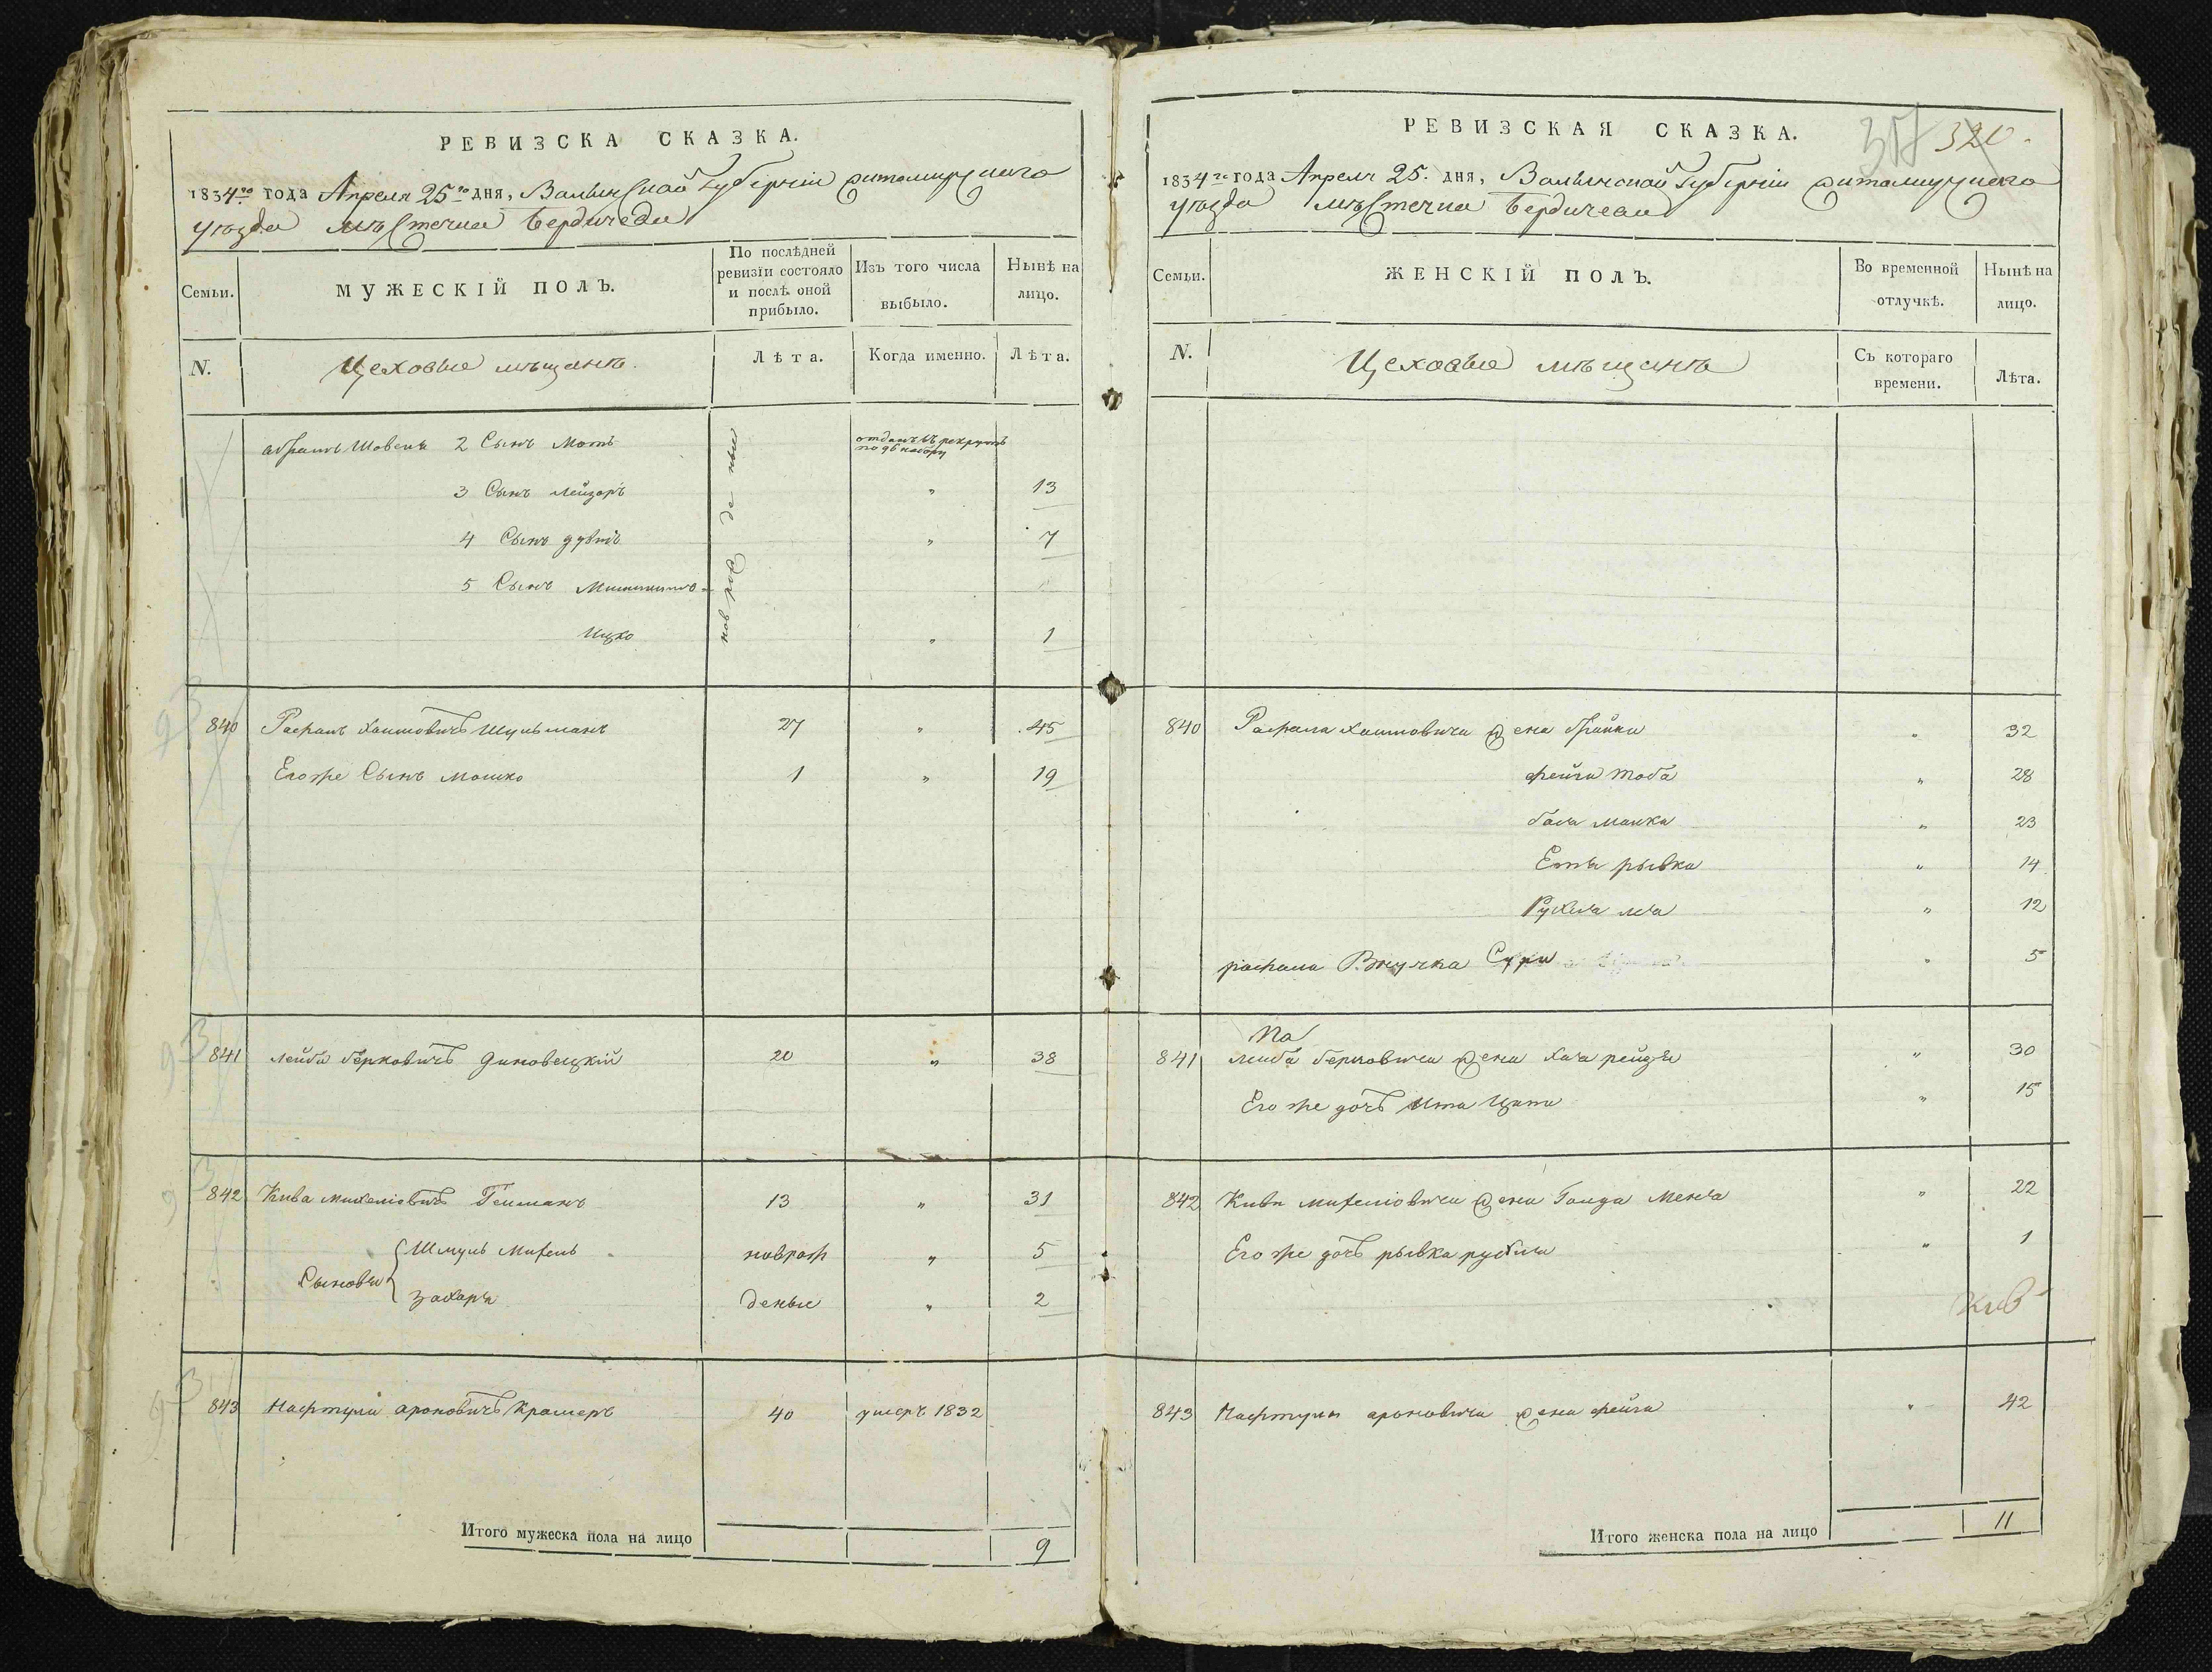 РЕВИЗСКА СКАЗКА.
1834го года Апреля 25го дня, Волынской Губернiи Житомирскаго
уѣзда мѣстечка Бердичева
Семьи.
МУЖЕСКІЙ ПОЛЪ.
По послѣдней ревизіи состояло и послѣ оной прибыло.
Изъ того числа выбыло.
Нынѣ на лицо.
N.
Цеховые мѣщанѣ.
Лѣта.
Когда именно.
Лѣта.
абрамъ Шовелъ 2 Сынъ Мотъ отданъ въ рекруты
по 96 набору
3 Сынъ Лейзоръ " 13
4 Сынъ " 7
5 Сынъ
Ицко " 1
новрожденые
840 Рафалъ Хаимовичъ Шульманъ 27 " 45
Его же Сынъ Мошко 1 " 19
841 Лейба берковичъ Диновецкій 20 " 38
842 Кива михелiовичъ Гелманъ 13 " 31
Сыновья { Шмуль Михель новрож " 5
Захарья деные " 2
843 Нафтула ароновичъ Крамеръ 40 умеръ 1832
Итого мужеска пола на лицо 9
РЕВИЗСКАЯ СКАЗКА.
317 320.
1834го года Апреля 25. дня, Волынской Губернiи Житомирскаго
уѣзда мѣстечка Бердичева
Семьи.
ЖЕНСКІЙ ПОЛЪ.
Во временной отлучкѣ.
Нынѣ на лицо.
N.
Цеховые мѣщанѣ
Съ котораго времени.
Лѣта.
840 Рафала Хаимовича жена брайна " 32
фейга тоба " 28
бася малка " 23
Естъ рывка " 14
Рухля лея " 12
рафала Внучка Сура " 5
841 Лейба берковича жена хая рейзя " 30
Его же дочь Ита Ципа " 15
842 Кивы михелiовича жена Голда Менья " 22
Его же дочь рывка рухля " 1
843 Нафтулы ароновича жена фейга " 42
Итого женска пола на лицо 11